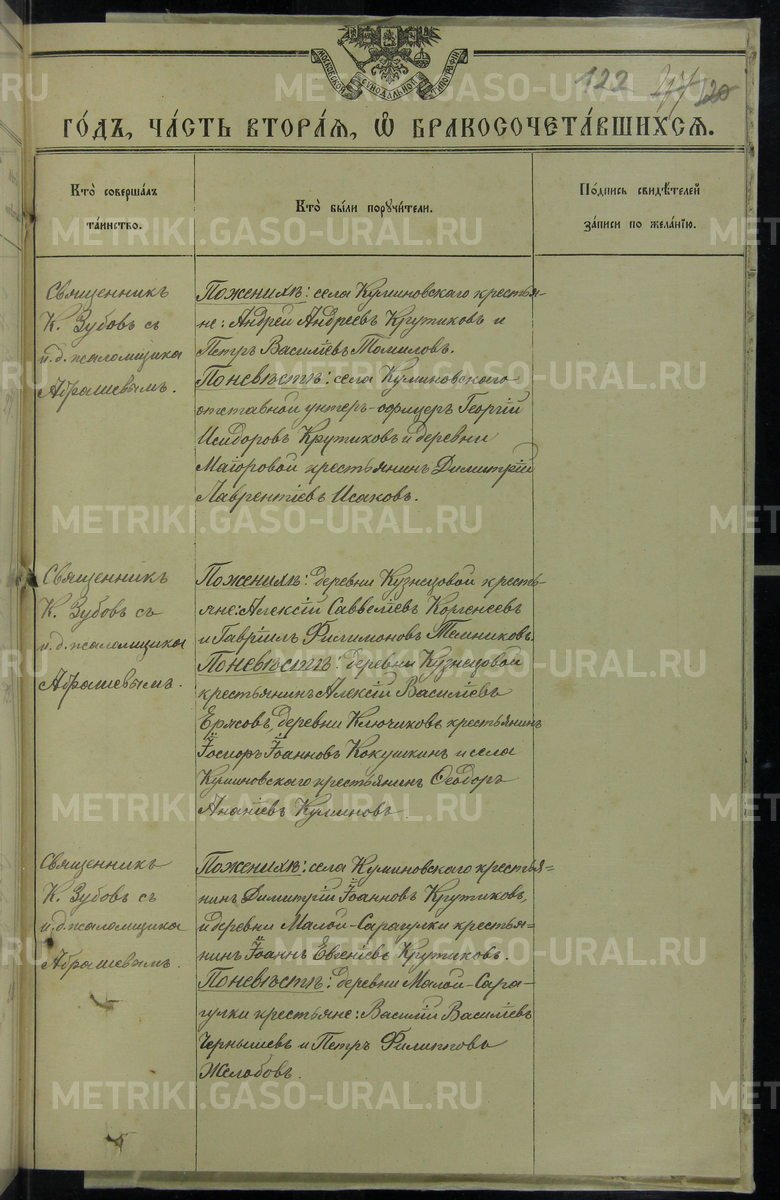 МОСКОВСКОЙ СѴНОДАЛЬНОЙ ТИПОГРАФІИ
122 277 120
ГО́ДЪ, ЧА́СТЬ ВТОРА́Я, Ѽ БРАКОСОЧЕТА́ВШИХСЯ.
Кто̀ соверша́лъ
та́инство.
Кто̀ бы́ли порꙋчи́тели.
По́дпись свидѣ́телей
за́писи по жела́нїю.
Священникъ
К. Зубовъ съ
и.д. псаломщика
Абрашевымъ.
По женихѣ: села Куминовскаго крестья-
не: Андрей Андреевъ Крутиковъ и
Петръ Василіевъ Томиловъ.
По невѣстѣ: села Куминовскаго
отставной унтеръ-офицеръ Георгій
Исидоровъ Крутиковъ и деревни
Маіоровой крестьянинъ Димитрій
Лаврентіевъ Исаковъ.
Священникъ
К. Зубовъ съ
и.д. псаломщика
Абрашевымъ.
По женихѣ: деревни Кузнецовой кресть-
яне: Алексій Саввеліевъ Коргенеевъ
и Гавріилъ Филимоновъ Темниковъ.
По невѣстѣ: деревни Кузнецовой
крестьянинъ Алексій Василіевъ
Ермсовъ, деревни Ключиковъ крестьянинъ
Іосифъ Іоанновъ Кокушкинъ и села
Куминовскаго крестьянинъ Ѳеодоръ
Ананіевъ Куминовъ.
Священникъ
К. Зубовъ съ
и.д. псаломщика
Абрашевымъ.
По женихѣ: села Куминовскаго крестья=
нинъ Димитрій Іоанновъ Крутиковъ,
и деревни Малой-Сарагулки крестья=
нинъ Іоаннъ Евгеніевъ Крутиковъ.
По невѣстѣ: деревни Малой-Сара-
гулки крестьяне: Василій Василіевъ
Чернышевъ и Петръ Филипповъ
Желобовъ.
METRIKI.GASO-URAL.RU